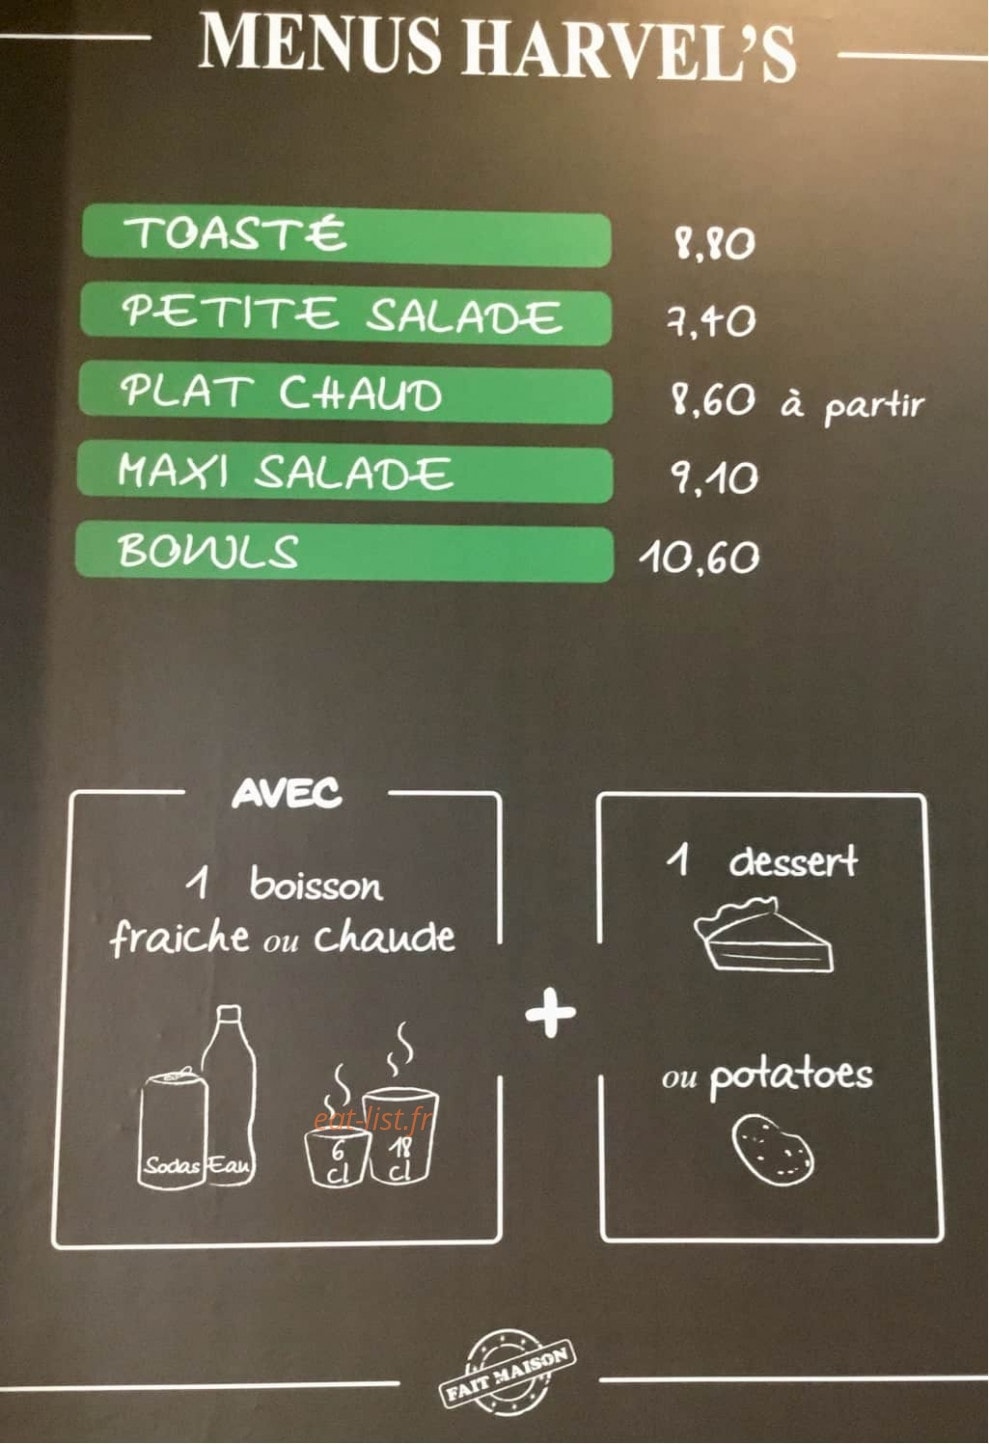 MENUS HARVEL'S
TOASTÉ 8,80
PETITE SALADE 7,40
PLAT CHAUD 8,60 à partir
MAXI SALADE 9,10
BOWLS 10,60
AVEC
1 boisson
fraiche ou chaude
Sodas Eau
6 cl
18 cl
+
1 dessert
ou potatoes
eat-list.fr
FAIT MAISON